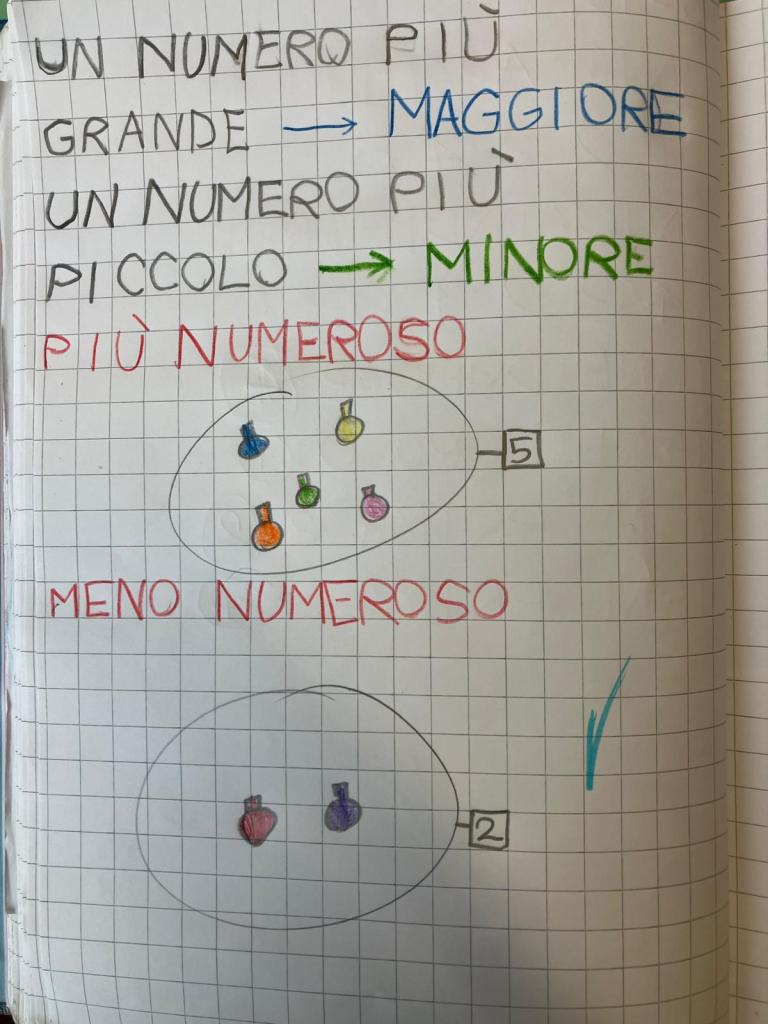 UN NUMERO PIÙ
GRANDE → MAGGIORE
UN NUMERO PIÙ
PICCOLO → MINORE
PIÙ NUMEROSO
5
MENO NUMEROSO
2